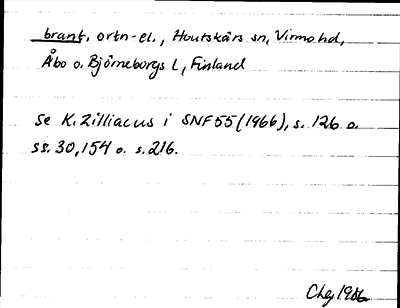 brant, ortn-el., Houtskärs sn, Virmo hd,
Åbo o. Björneborgs l, Finland
Se K. Zilliacus i SNF 55 (1966), s. 126 o.
ss. 30, 154 o. s. 216.
1986